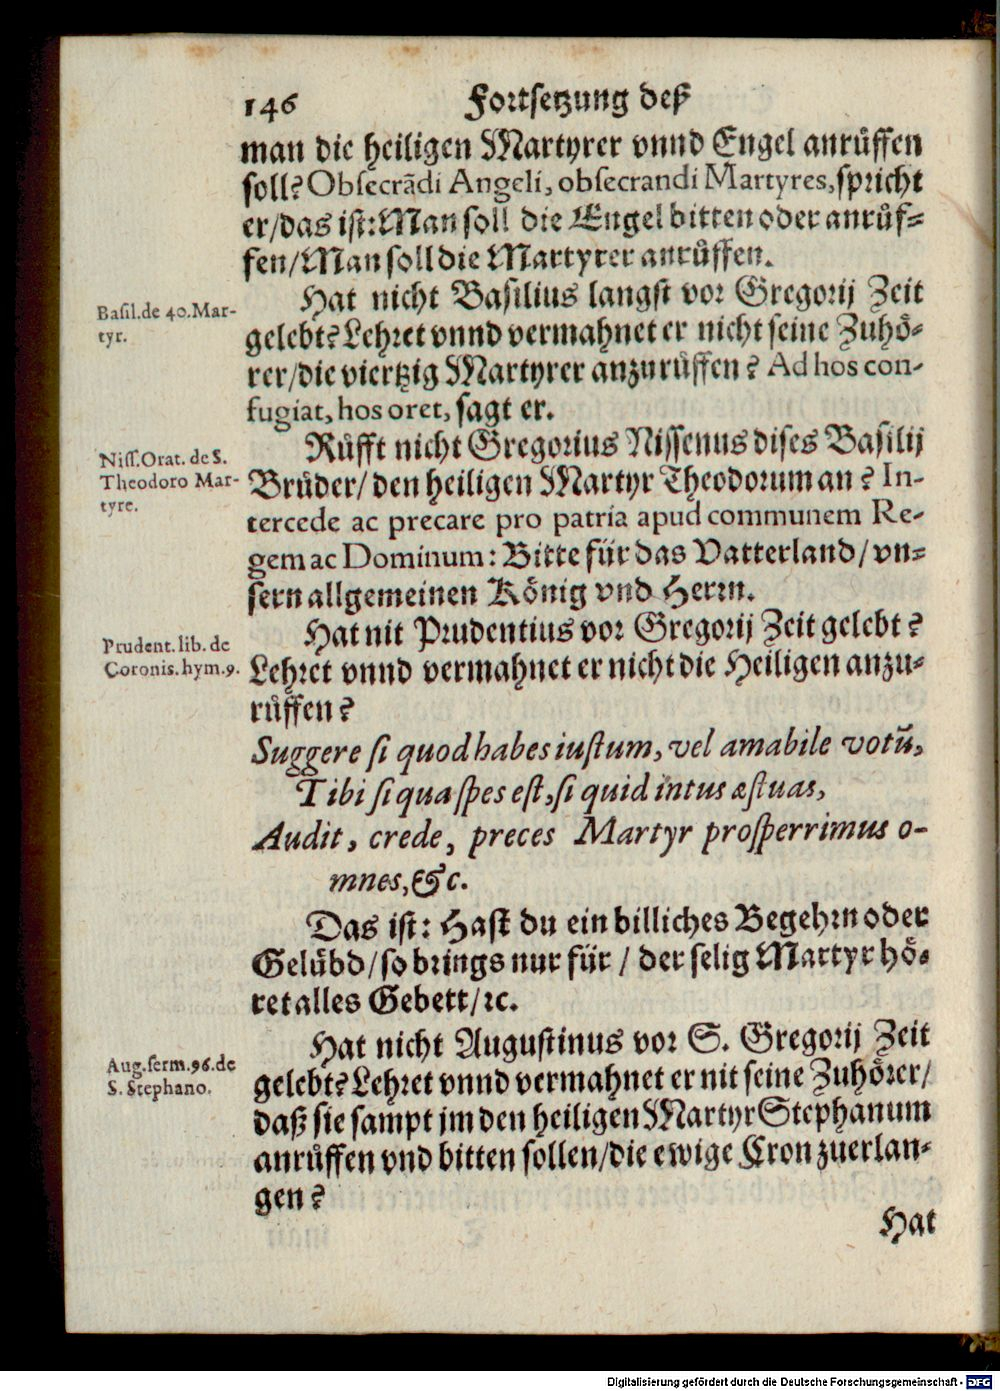 146 Fortsetzung deß
man die heiligen Martyrer vnnd Engel anrůffen
soll? Obsecrãdi Angeli, obsecrandi Martyres, spricht
er/das ist: Man soll die Engel bitten oder anrůf-
fen/Man soll die Martyrer anrůffen.
Basil. de 40. Mar-
tyr.
Hat nicht Basilius langst vor Gregorij Zeit
gelebt? Lehret vnnd vermahnet er nicht seine Zuhö-
rer/die viertzig Martyrer anzurůffen? Ad hos con-
fugiat, hos oret, sagt er.
Niss. Orat. de S.
Theodoro Mar-
tyre.
Růfft nicht Gregorius Nissenus dises Basilij
Brůder/ den heiligen Martyr Theodorum an? In-
tercede ac precare pro patria apud communem Re-
gem ac Dominum: Bitte für das Vatterland/ vn-
sern allgemeinen König vnd Herrn.
Prudent. lib. de
Coronis. hym. 9.
Hat nit Prudentius vor Gregorij Zeit gelebt?
Lehret vnnd vermahnet er nicht die Heiligen anzu-
růffen?
Suggere si quod habes iustum, vel amabile votũ,
Tibi si qua spes est, si quid intus æstuas,
Audit, crede, preces Martyr prosperrimus o-
mnes, &c.
Das ist: Hast du ein billiches Begehrn oder
Gelübd/ so brings nur für / der selig Martyr hö-
ret alles Gebett/ꝛc.
Aug. serm. 96. de
S. Stephano.
Hat nicht Augustinus vor S. Gregorij Zeit
gelebt? Lehret vnnd vermahnet er nit seine Zuhörer/
daß sie sampt jm den heiligen Martyr Stephanum
anrůffen vnd bitten sollen/die ewige Cron zuerlan-
gen?
Hat
Digitalisierung gefördert durch die Deutsche Forschungsgemeinschaft - DFG